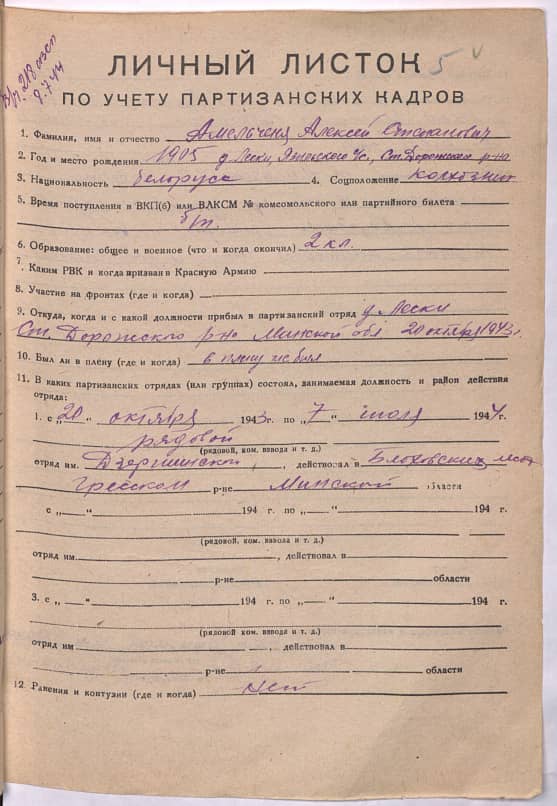 В/п. 218 азсп
9.7.44
5
ЛИЧНЫЙ ЛИСТОК
ПО УЧЕТУ ПАРТИЗАНСКИХ КАДРОВ
1. Фамилия, имя и отчество Амельченя Алексей Степанович
2. Год и место рождения 1905 д. Лески, с/с., Ст. Дорожский р-на
3. Национальность белорусс 4. Соцположение колхозник
5. Время поступления в ВКП(б) или ВЛКСМ № комсомольского или партийного билета
б/п.
6. Образование: общее и военное (что и когда окончил) 2 кл.
7. Каким РВК и когда призван в Красную Армию
8. Участие на фронтах (где и когда)
9. Откуда, когда и с какой должности прибыл в партизанский отряд д. Лески
Ст. Дорожского р-на Минской обл 20 октября 1943 г.
10. Был ли в плену (где и когда) в плену не был
11. В каких партизанских отрядах (или группах) состоял, занимаемая должность и район действия
отряда:
1. с „20“ октября 1943 г. по „7“ июля 1944 г.
рядовой
(рядовой, ком. взвода и т. д.)
отряд им. Дзержинского, действовал в
Гресском р-не Минской области
с „ “ 194 г. по „ “ 194 г.
(рядовой, ком. взвода и т. д.)
отряд им. , действовал в
р-не области
3. с „ “ 194 г. по „ “ 194 г.
(рядовой, ком. взвода и т. д.)
отряд им. , действовал в
р-не области
12. Ранения и контузии (где и когда) нет